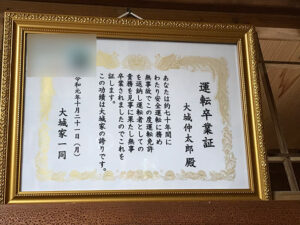 運転卒業証
大城仲太郎 殿
あなたは約七十年間に
わたり安全運転に務め
無事故でこの度運転免許
を返納し運転者としての
責務を見事に果たし無事
卒業されましたのでこれを
証します。
この功績は大城家の誇りです。
令和元年十月二十一日(月)
大城家一同